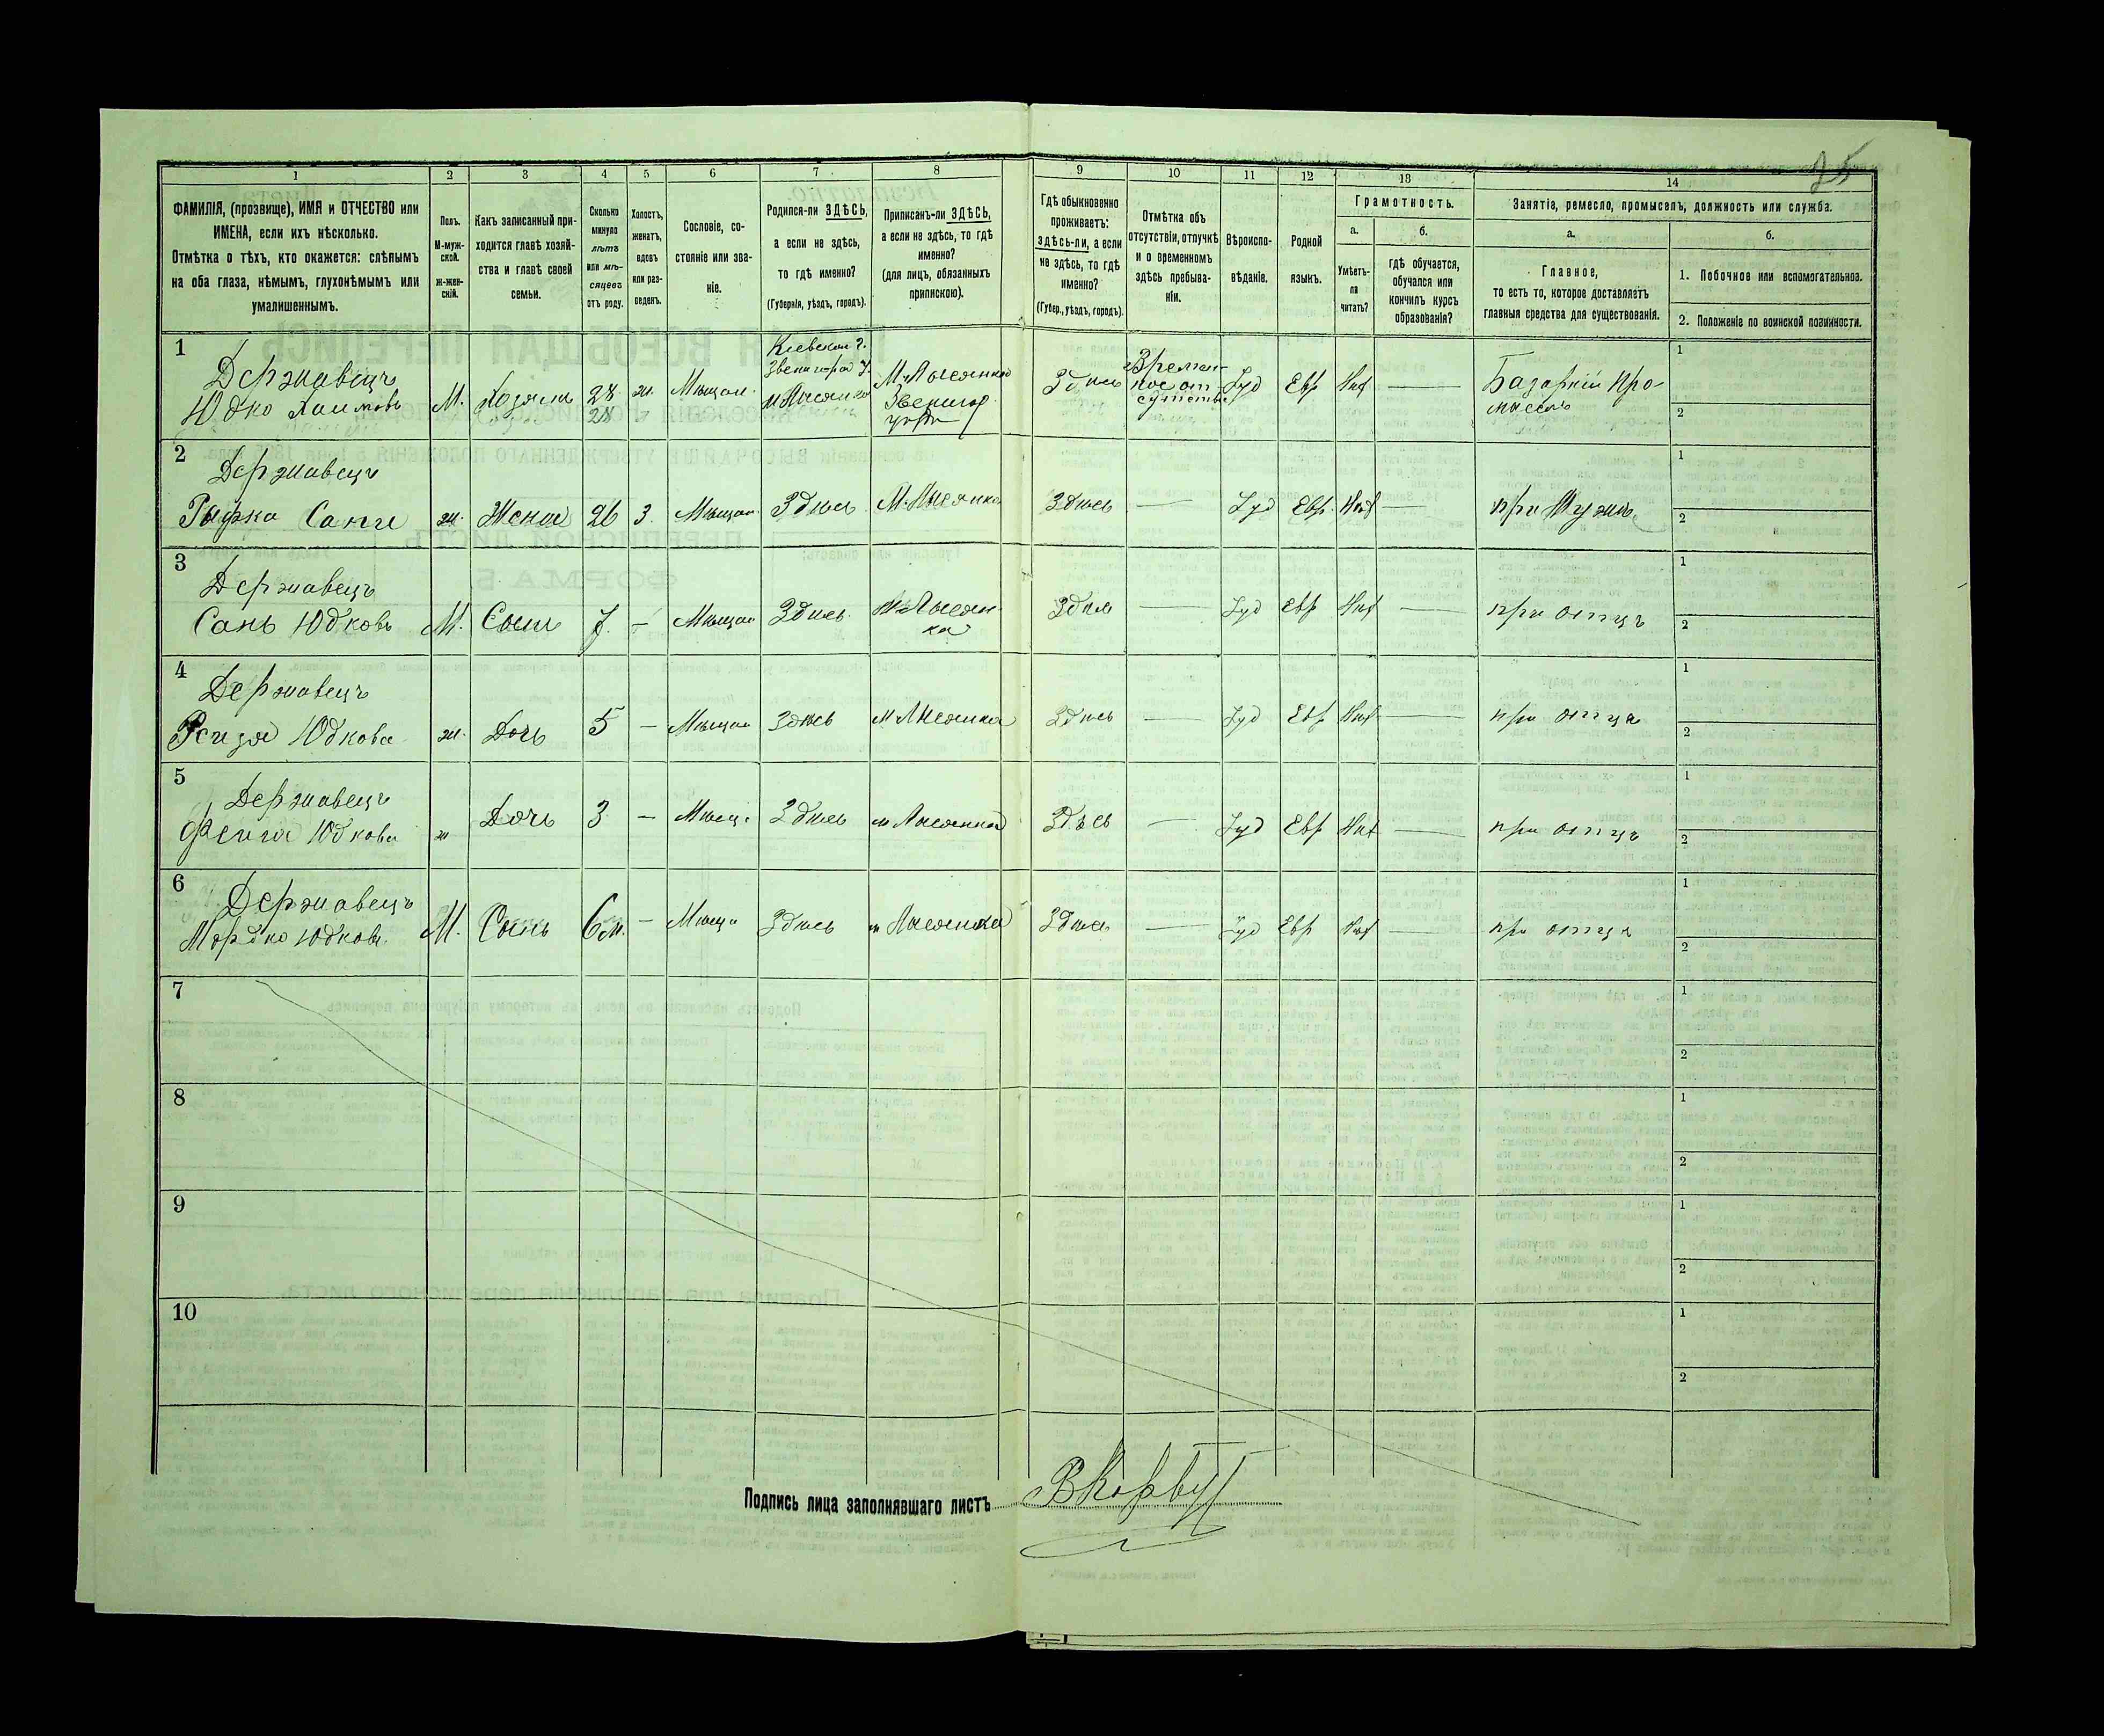 25
1 2 3 4 5 6 7 8 9 10 11 12 13 14
ФАМИЛІЯ, (прозвище), ИМЯ и ОТЧЕСТВО или
ИМЕНА, если ихъ нѣсколько.
Отмѣтка о тѣхъ, кто окажется: слѣпымъ
на оба глаза, нѣмымъ, глухонѣмымъ или
умалишеннымъ.
Полъ.
М-муж-
ской.
ж-жен-
скій.
Какъ записанный при-
ходится главѣ хозяй-
ства и главѣ своей
семьи.
Сколько
минуло
лѣтъ
или мѣ-
сяцевъ
отъ роду.
Холостъ,
женатъ,
вдовъ
или раз-
веденъ.
Сословіе, со-
стояніе или зва-
ніе.
Родился-ли ЗДѢСЬ,
а если не здѣсь,
то гдѣ именно?
(Губернія, уѣздъ, городъ).
Приписанъ-ли ЗДѢСЬ,
а если не здѣсь, то гдѣ
именно?
(для лицъ, обязанныхъ
припискою).
Гдѣ обыкновенно
проживаетъ:
здѣсь-ли, а если
не здѣсь, то гдѣ
именно?
(Губер., уѣздъ, городъ).
Отмѣтка объ
отсутствіи, отлучкѣ
и о временномъ
здѣсь пребыва-
ніи.
Вѣроиспо-
вѣданіе.
Родной
языкъ.
Грамотность.
а.
Умѣетъ-
ли
читать?
б.
гдѣ обучается,
обучался или
кончилъ курсъ
образованія?
Занятіе, ремесло, промыселъ, должность или служба.
а.
Главное,
то есть то, которое доставляетъ
главныя средства для существованія.
б.
1. Побочное или вспомогательное.
2. Положеніе по воинской повинности.
1
Державецъ
Юдко Хаимовъ
М.
Хозяинъ
28
28
ж.
Мѣщан.
Кіевской г.
Звенигород. у.
м Лысянка
М. Лысянка
Звенигор.
Здѣсь
Времен-
ное от-
сутствіе
Іуд
Евр
Нѣт
—
Базарній про-
мыселъ
1
2
2
Державецъ
Рыфка Сани
ж.
Жена
26
3.
Мѣщан.
Здѣсь
М. Лысянка
Здѣсь
—
Іуд
Евр.
Нѣт
—
при Мужѣ
1
2
3
Державецъ
Сань Юдковъ
М.
Сынъ
7.
—
Мѣщан
Здѣсь.
м Лысян-
ка
Здѣсь
—
Іуд
Евр
Нѣт
—
при отцѣ
1
2
4
Державецъ
Рейзя Юдкова
ж.
Дочь
5
—
Мѣщан
Здѣсь
м Лысянка
Здѣсь
—
Іуд
Евр
Нѣт
—
при отцѣ
1
2
5
Державецъ
Фейга Юдкова
ж
Дочь
3
—
Мѣщ.
Здѣсь
м Лысянка
Здѣсь
—
Іуд
Евр
Нѣт
—
при отцѣ
1
2
6
Державецъ
Мордко Юдковъ.
М.
Сынъ
6 м.
—
Мѣща
Здѣсь
м Лысянка
Здѣсь
—
Іуд
Евр
Нѣт
—
при отцѣ
1
2
7
1
2
8
1
2
9
1
2
10
1
2
Подпись лица заполнявшаго листъ